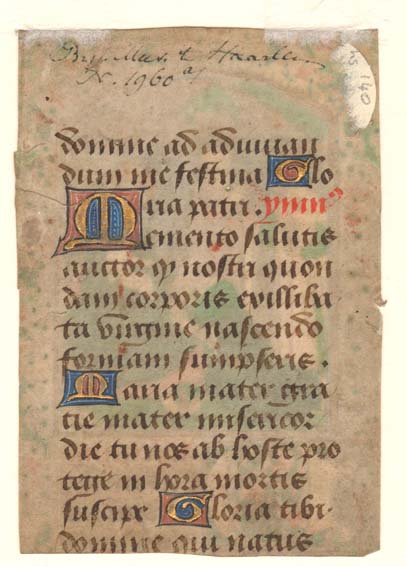 Br. Mus. & Haarlem
Nr. 1960 a)
140
domine ad adiuuan
dum me festina Glo
ria patri. ymn9
Memento salutis
auctor q nostri quon
dam corporis ex illiba
ta virgine nascendo
formam sumpseris.
Maria mater gra
tie mater misericor
die tu nos ab hoste pro
tege in hora mortis
suscipe Gloria tibi
domine qui natus